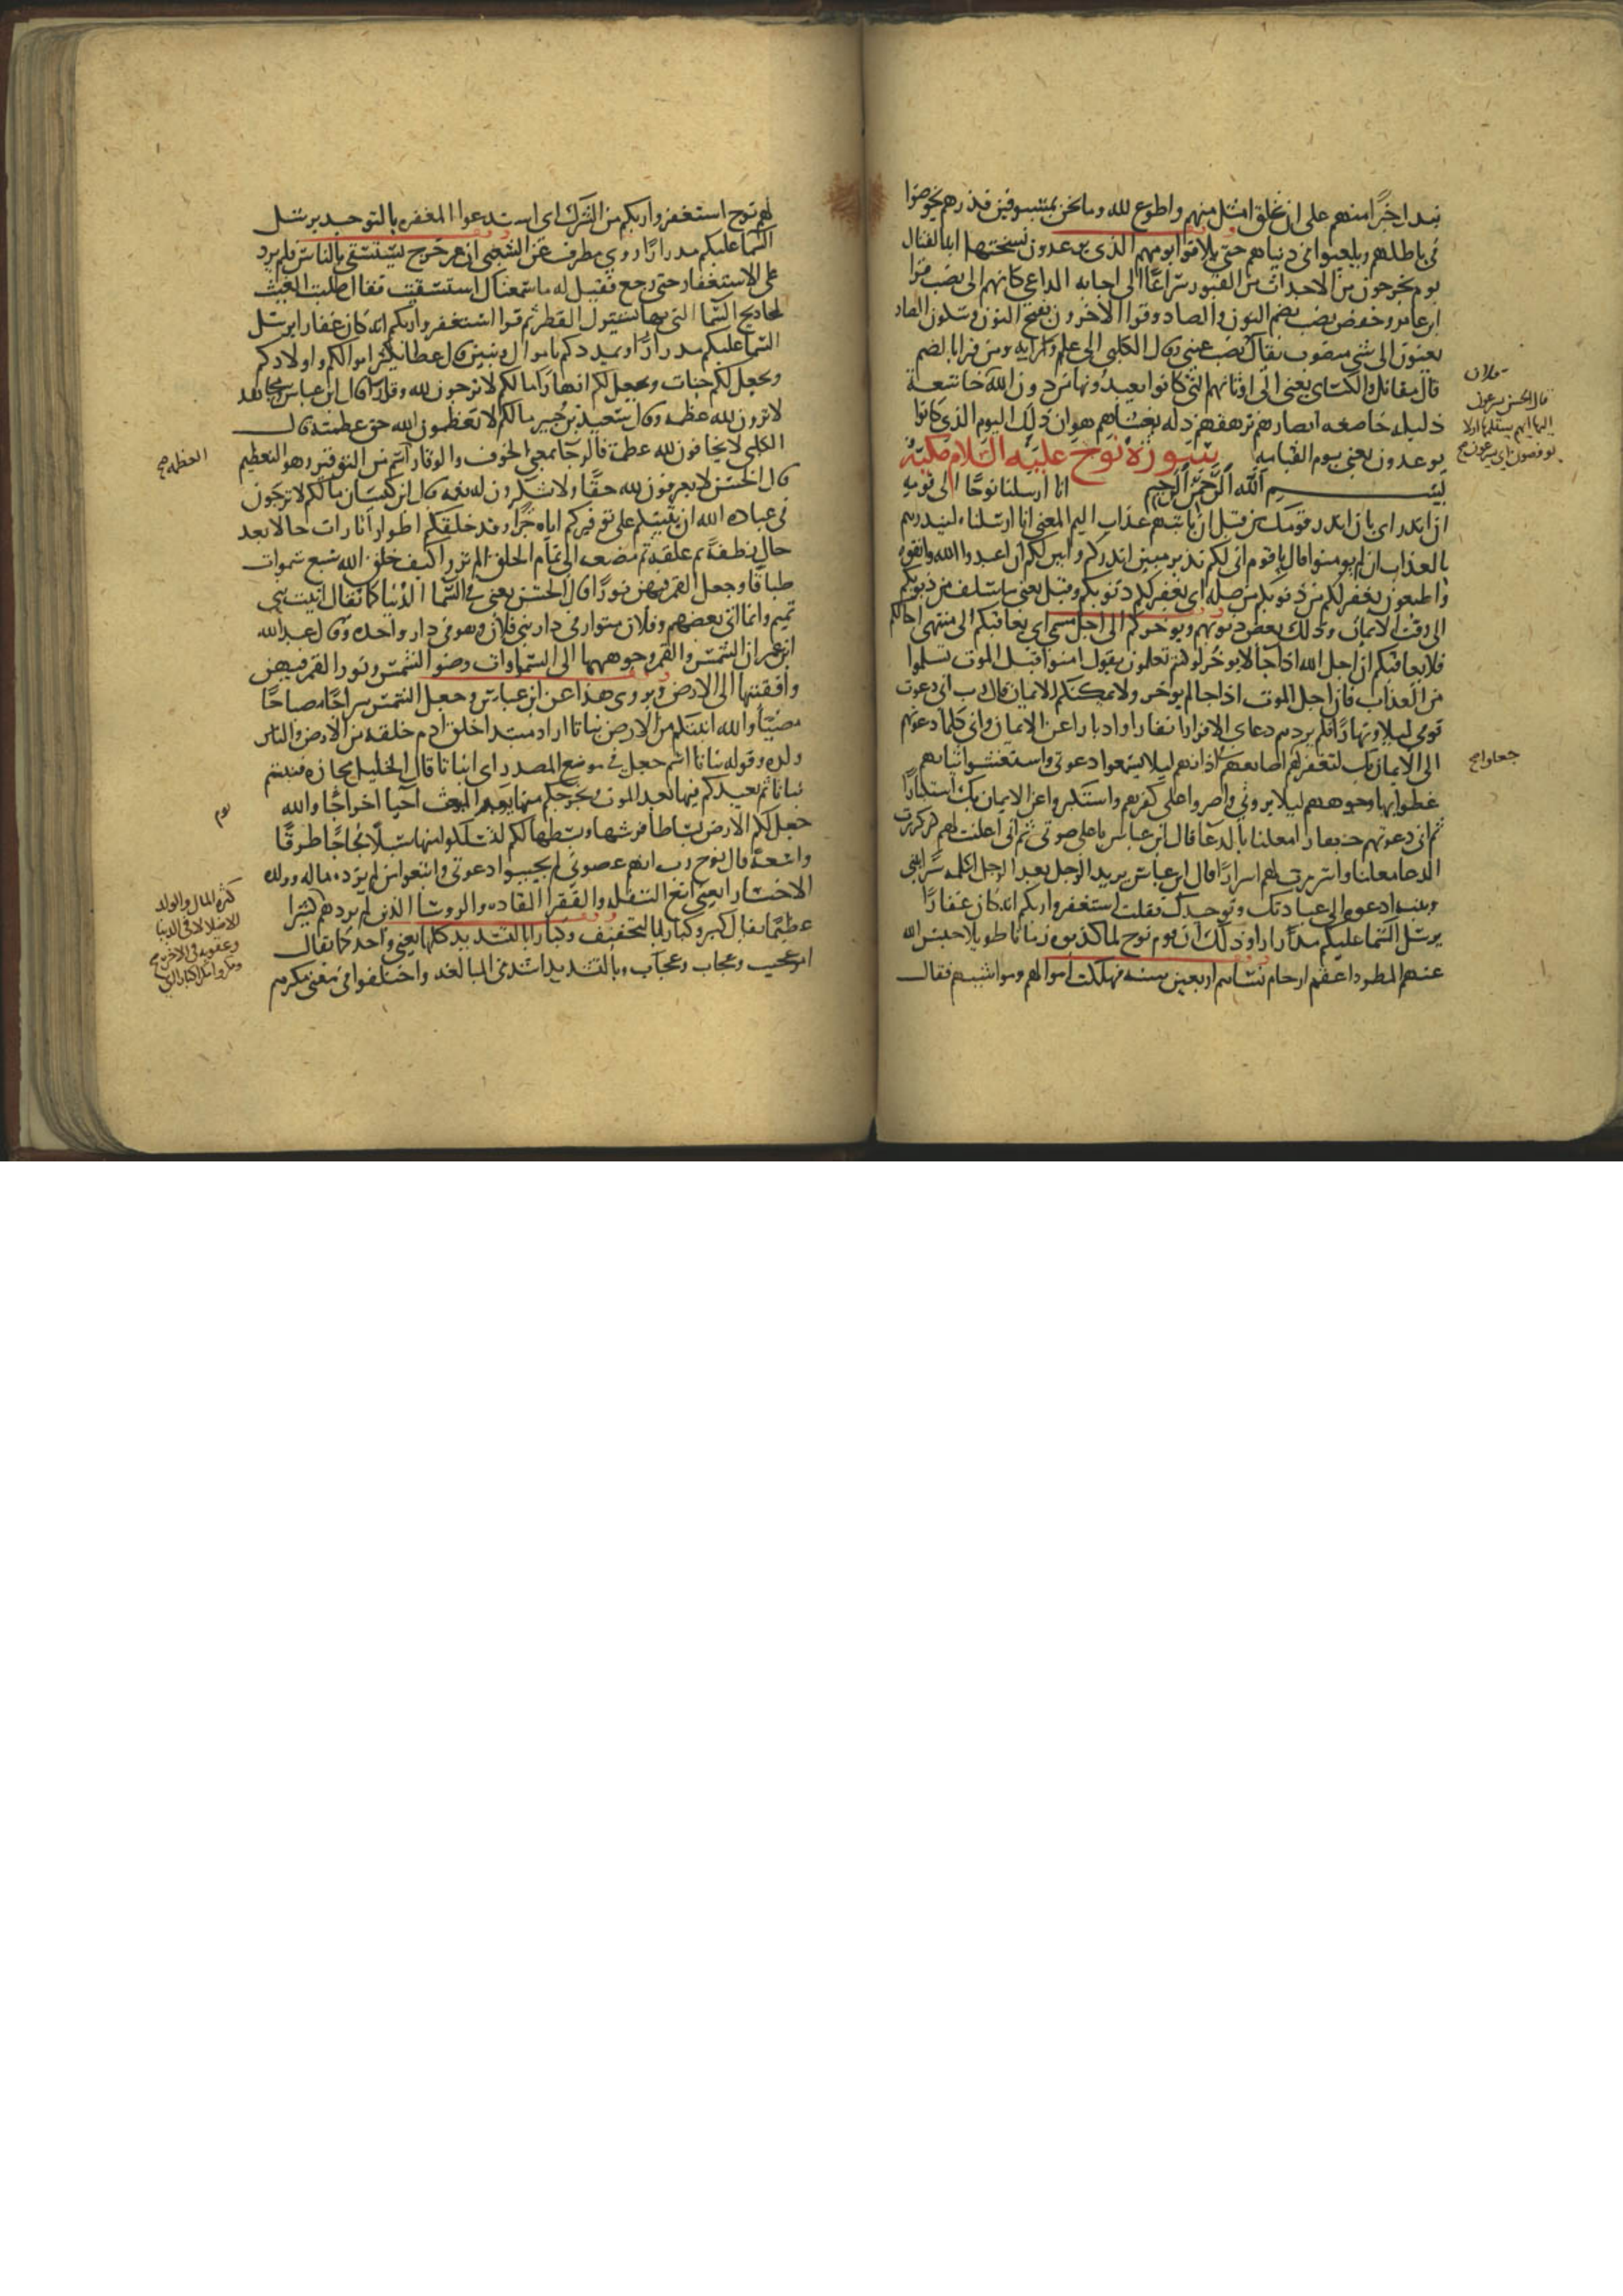 نبدل خيرًا منهم على ان نخلق امثل منهم واطوع لله وما نحن بمسبوقين فذرهم يخوضوا
في باطلهم ويلعبوا في دنياهم حتى يلاقوا يومهم الذي يوعدون نسختها اية القتال
يوم يخرجون من الاجداث من القبور سراعًا الى اجابه الداعي كانهم الى نصب قرا
ابن عامر وحفص نصب بضم النون والصاد وقرا الاخرون بفتح النون وسكون الصاد
يعنون الى شي منصوب يقال نصب عيني وقال الكلبي الى علم وراية ومن قرا بالضم
قال مقاتل والكساي يعني الى اوثانهم التي كانوا يعبدونها من دون الله خاشعة
ذليله خاضعه ابصارهم ترهقهم ذله يغشاهم هوان ذلك اليوم الذي كانوا
يوعدون يعني يوم القيامه سورة نوح عليه السلام مكية
بسم الله الرحمن الرحيم انا ارسلنا نوحًا الى قومه
ان انذر اي بان انذر قومك من قبل ان ياتيهم عذاب اليم المعنى انا ارسلناه لينذرهم
بالعذاب ان لم يومنوا قال يا قوم اني لكم نذير مبين انذركم وابين لكم ان اعبدوا الله واتقوه
واطيعون يغفر لكم من ذنوبكم من صله اي يغفر لكم ذنوبكم وقيل يعني ما سلف من ذنوبكم
الى وقت الايمان وذلك بعض ذنوبهم ويوخركم الى اجل مسمى اي يعافيكم الى منتهى اجالكم
فلا يعاقبكم ان اجل الله اذا جا لا يوخر لو كنتم تعلمون يقول امنوا قبل الموت تسلموا
من العذاب فان اجل الموت اذا جا لم يوخر ولا يمكنكم الايمان قال رب اني دعوت
قومي ليلا ونهارًا فلم يزدهم دعاي الا فرارا نفارا وادبارا عن الايمان واني كلما دعوتهم
الى الايمان بك لتغفر لهم اصابعهم في اذانهم ليلا يسمعوا دعوتي واستغشوا ثيابهم
غطوا بها وجوههم ليلا يروني واصروا على كفرهم واستكبروا عن الايمان بك استكبارًا
ثم اني دعوتهم جهارا معلنا بالدعا قال ابن عباس باعلى صوتي ثم اني اعلنت لهم كررت
الدعا معلنا واسررت لهم اسرارًا قال ابن عباس يريد الرجل بعد الرجل اكلمه سرًا بيني
وبينه ادعوه الى عبادتك وتوحيدك فقلت استغفروا ربكم انه كان غفارًا
يرسل السما عليكم مدرارا وذلك ان قوم نوح لما كذبوه زمانا طويلا حبس الله
عنهم المطر واعقم ارحام نسايهم اربعين سنه فهلكت اموالهم ومواشيهم فقال
قال الحسن يسرعون
اليها ايهم يستلمها اولا
يوفضون اي يسرعون صح
جعلوا صح
لهم نوح استغفروا ربكم من الشرك اي استدعوا المغفره بالتوحيد يرسل
السما عليكم مدرارًا روى مطرف عن الشعبي ان عمر خرج يستسقي بالناس فلم يزد
على الاستغفار حتى رجع فقيل له ما سمعناك استسقيت فقال طلبت الغيث
بمجاديح السما التي بها يستنزل القطر ثم قرا استغفروا ربكم انه كان غفارا يرسل
السما عليكم مدرارًا ويمددكم باموال وبنين قال عطا يكثر اموالكم واولادكم
ويجعل لكم جنات ويجعل لكم انهارًا ما لكم لا ترجون لله وقارًا قال ابن عباس ومجاهد
لا ترون لله عظمه وقال سعيد بن جبير ما لكم لا تعظمون الله حق عظمته وقال
الكلبي لا يخافون لله عظمة فالرجا بمعنى الخوف والوقار اسم من التوقير وهو التعظيم
قال الحسن لا يعرفون لله حقًا ولا يشكرون له نعمه قال ابن كيسان ما لكم لا ترجون
في عباده الله ان يثيبكم على توقيركم اياه خيرًا وقد خلقكم اطوارا تارات حالا بعد
حال نطفة ثم علقه ثم مضغه الى تمام الخلق الم تروا كيف خلق الله سبع سموات
طباقًا وجعل القمر فيهن نورًا قال الحسن يعني في السما الدنيا كما يقال اتيت بني
تميم وانما اتى بعضهم وفلان متوار في دار بني فلان وهو في دار واحده وقال عبد الله
ابن عمر ان الشمس والقمر وجوههما الى السماوات وضو الشمس ونور القمر فيهن
واقفيتها الى الارض ويروى هذا عن ابن عباس وجعل الشمس سراجًا مصباحًا
مضيئًا والله انبتكم من الارض نباتا اراد مبتدا خلق ادم خلقه من الارض والناس
ولده وقوله نباتا اسم جعل في موضع المصدر اي انباتا قال الخليل مجازه فنبتم
نباتا ثم يعيدكم فيها بعد الموت ويخرجكم منها يوم البعث احيا اخراجًا والله
جعل لكم الارض بساطا فرشها وبسطها لكم لتسلكوا منها سبلًا فجاجًا طرقًا
واسعة قال نوح رب انهم عصوني لم يجيبوا دعوتي واتبعوا من لم يزده ماله وولده
الا خسارا يعني اتبع السفله والفقرا القاده والروسا الذين لم يزدهم كثيرا
عظيمًا يقال كبير وكبار بالتخفيف وكبارا بالتشديد كلها بمعنى واحد كما يقال
امر عجيب وعجاب وعجاب وبالتشديد اشد في المبالغه واختلفوا في معنى مكرهم
العظمه صح
كثرة المال والولد
الا ضلالا في الدنيا
وعقوبه في الاخره صح
ومكروا مكرا كبارا اي